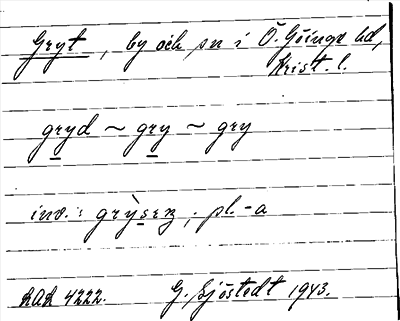 Gryt, by och sn i Ö. Göinge hd,
Krist. l.
gryd ~ gry ~ gry
inv.: grỳsɛz, pl. -a
4222. G. Sjöstedt 1943.